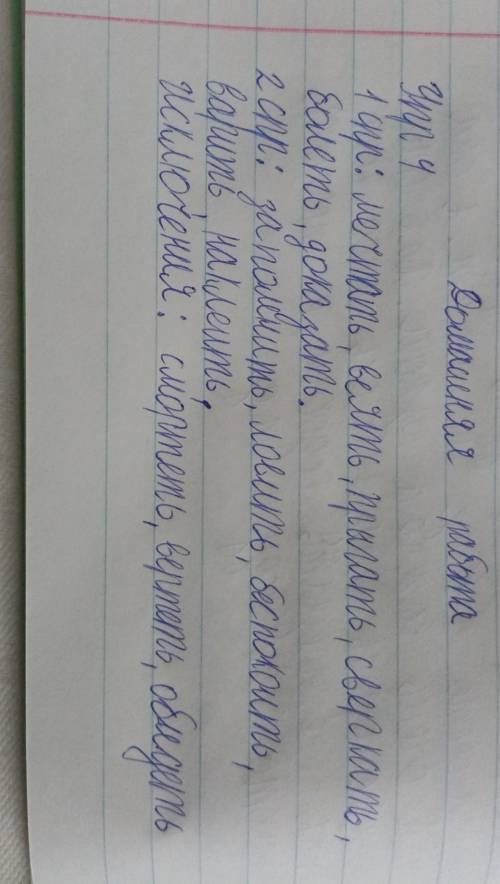 Домашняя работа
Упр 4
1 спр: мечтать, веять, прыгать, сверкать,
болеть, доказать.
2 спр: заполнить, ловить, беспокоить,
варить, наклеить,
исключения: смотреть, вертеть, обидеть